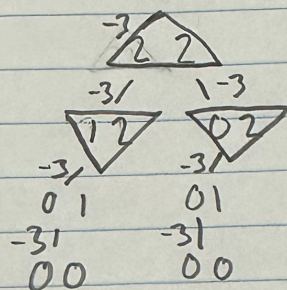 -3
2 2
-3/ \-3
1 2 0 2
-3/ -3/
0 1 0 1
-3| -3|
0 0 0 0